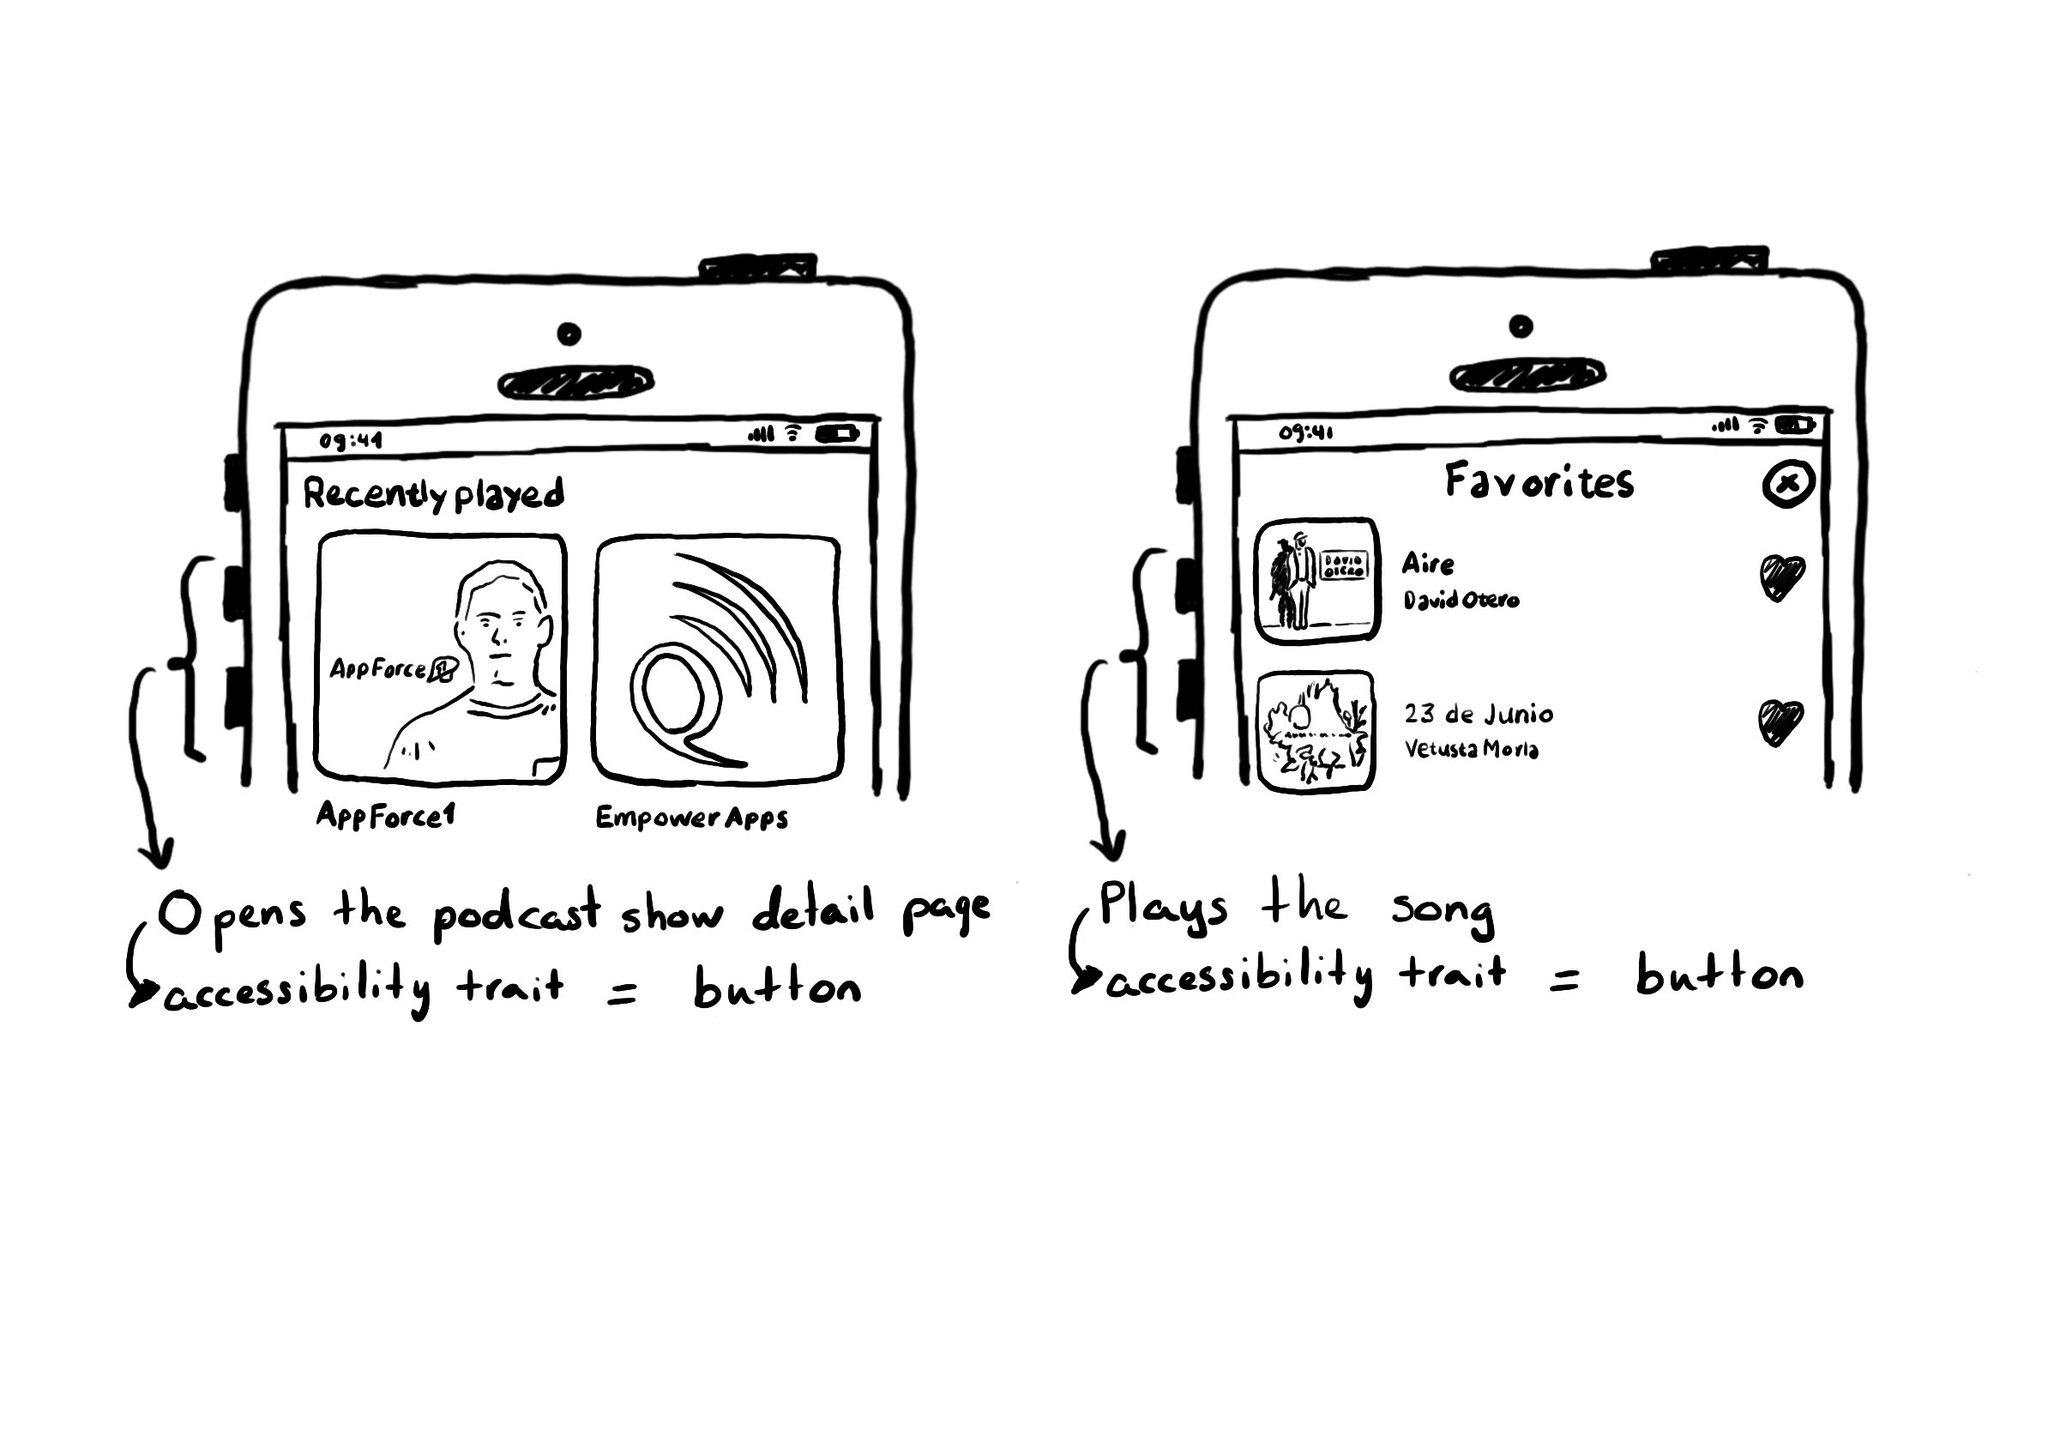 09:41
Recently played
AppForce
AppForce1
Empower Apps
Opens the podcast show detail page
accessibility trait = button
09:41
Favorites
DAVID
OTERO
Aire
David Otero
23 de Junio
Vetusta Morla
Plays the song
accessibility trait = button